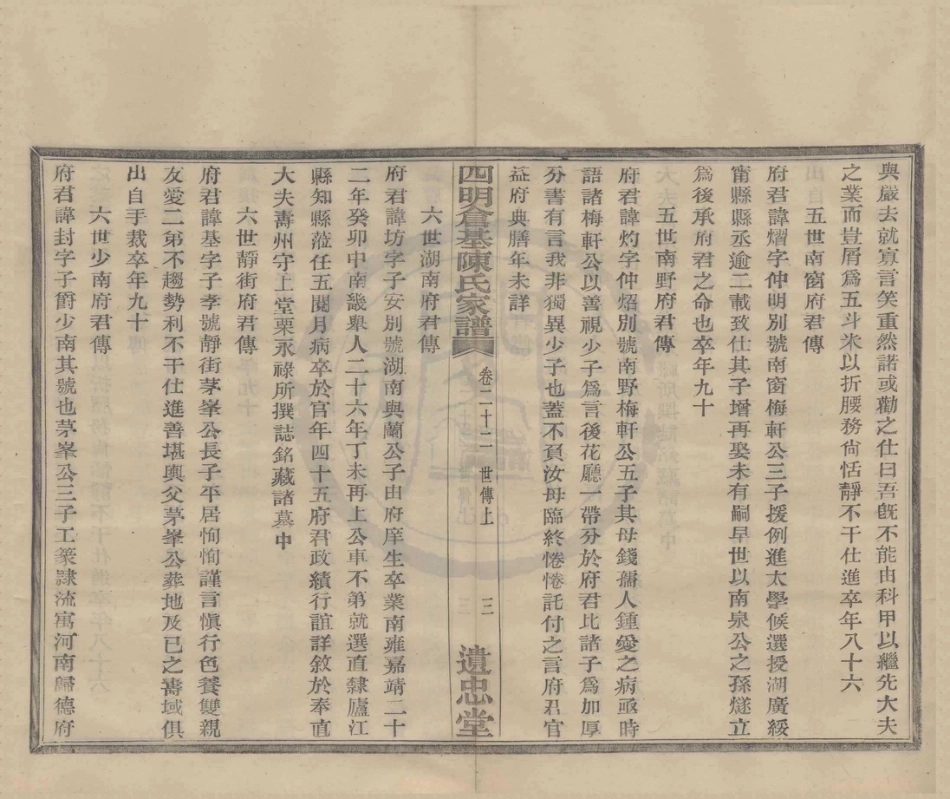 與嚴去就寡言笑重然諾或勸之仕曰吾旣不能由科甲以繼先大夫
之業而豈屑爲五斗米以折腰務尙恬靜不干仕進卒年八十六
五世南窗府君傳
府君諱熠字仲明別號南窗梅軒公三子援例進太學候選授湖廣綏
甯縣縣丞逾二載致仕其子增再娶未有嗣早世以南泉公之孫燧立
爲後承府君之命也卒年九十
五世南野府君傳
府君諱灼字仲炤別號南野梅軒公五子其母錢孺人鍾愛之病亟時
語諸梅軒公以善視少子爲言後花廳一帶分於府君比諸子爲加厚
分書有言我非獨異少子也蓋不負汝母臨終惓惓託付之言府君官
益府典膳年未詳
四明倉基陳氏家譜 卷二十二 世傳上 三 遺忠堂
六世湖南府君傳
府君諱坊字子安別號湖南與蘭公子由府庠生卒業南雍嘉靖二十
二年癸卯中南畿舉人二十六年丁未再上公車不第就選直隸廬江
縣知縣蒞任五閱月病卒於官年四十五府君政績行誼詳敘於奉直
大夫壽州守上堂栗永祿所撰誌銘藏諸墓中
六世靜街府君傳
府君諱基字子孝號靜街茅峯公長子平居恂恂謹言愼行色養雙親
友愛二弟不趨勢利不干仕進善堪輿父茅峯公葬地及已之壽域俱
出自手裁卒年九十
六世少南府君傳
府君諱封字子爵少南其號也茅峯公三子工篆隸流寓河南歸德府